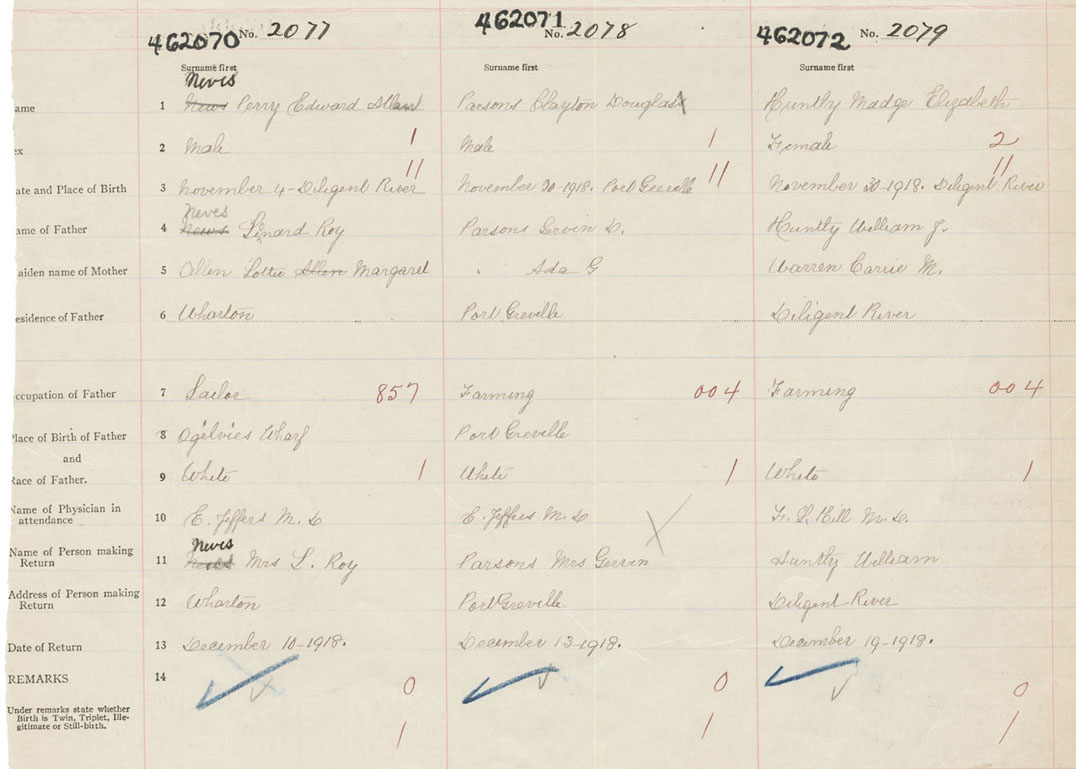 462070 No. 2077 462071 No. 2078 462072 No. 2079
Surname first Surname first Surname first
Neves
ame 1 News Perry Edward Allan Parsons Clayton Douglas Huntly Madge Elizabeth
ex 2 Male 1 Male 1 Female 2
11 11 11
ate and Place of Birth 3 November 4-Diligent River November 30-1918. Port Greville November 30-1918. Diligent River
Neves
ame of Father 4 News Linard Roy Parsons Gervin D. Huntly William J.
aiden name of Mother 5 Allen Lottie Allen Margaret . Ada G Warren Carrie M.
esidence of Father 6 Wharton Port Greville Diligent River
ccupation of Father 7 Sailor 857 Farming 004 Farming 004
Place of Birth of Father 8 Ogilvies Wharf Port Greville
and
Race of Father. 9 White 1 White 1 White 1
Name of Physician in
attendance 10 E. Jeffers M. D E. Jeffers M. D F. L. Hill M. D.
Neves
Name of Person making
Return 11 Mrs L. Roy Parsons Mrs Gervin Huntly William
Address of Person making
Return 12 Wharton Port Greville Diligent River
Date of Return 13 December 10-1918. December 13-1918. December 19-1918.
REMARKS 14
0 0 0
Under remarks state whether
Birth is Twin, Triplet, Ille-
gitimate or Still-birth.
1 1 1